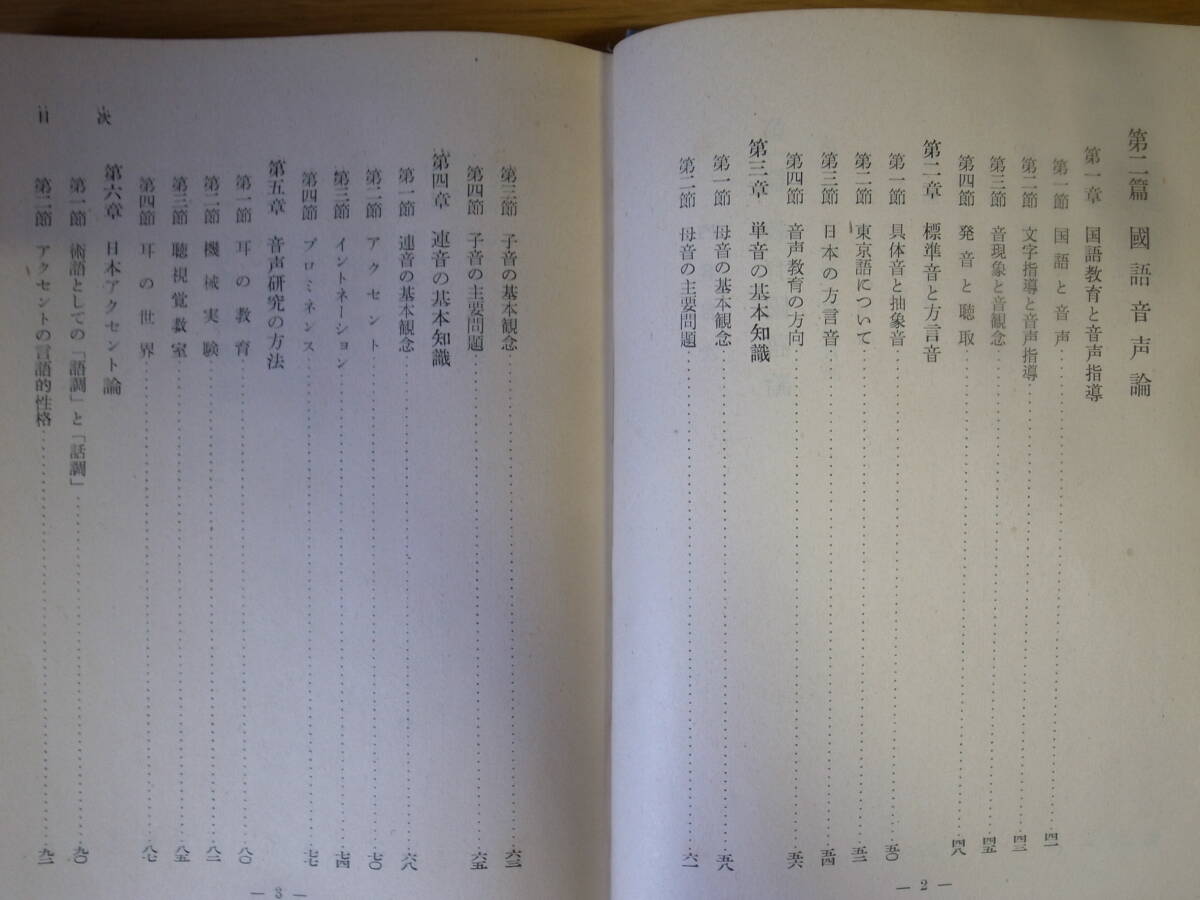 第二篇 國語音声論
第一章 国語教育と音声指導
第一節 国語と音声……四一
第二節 文字指導と音声指導……四三
第三節 音現象と音観念……四五
第四節 発音と聴取……四八
第二章 標準音と方言音
第一節 具体音と抽象音……五〇
第二節 東京語について……五二
第三節 日本の方言音……五四
第四節 音声教育の方向……五六
第三章 単音の基本知識
第一節 母音の基本観念……五八
第二節 母音の主要問題……六一
— 2 —
第三節 子音の基本観念……六三
第四節 子音の主要問題……六五
第四章 連音の基本知識
第一節 連音の基本観念……六八
第二節 アクセント……七〇
第三節 イントネーション……七四
第四節 プロミネンス……七七
第五章 音声研究の方法
第一節 耳の教育……八〇
第二節 機械実験……八二
第三節 聴視覚教室……八五
第四節 耳の世界……八七
第六章 日本アクセント論
第一節 術語としての「語調」と「話調」……九〇
第二節 アクセントの言語的性格……九二
目次
— 3 —